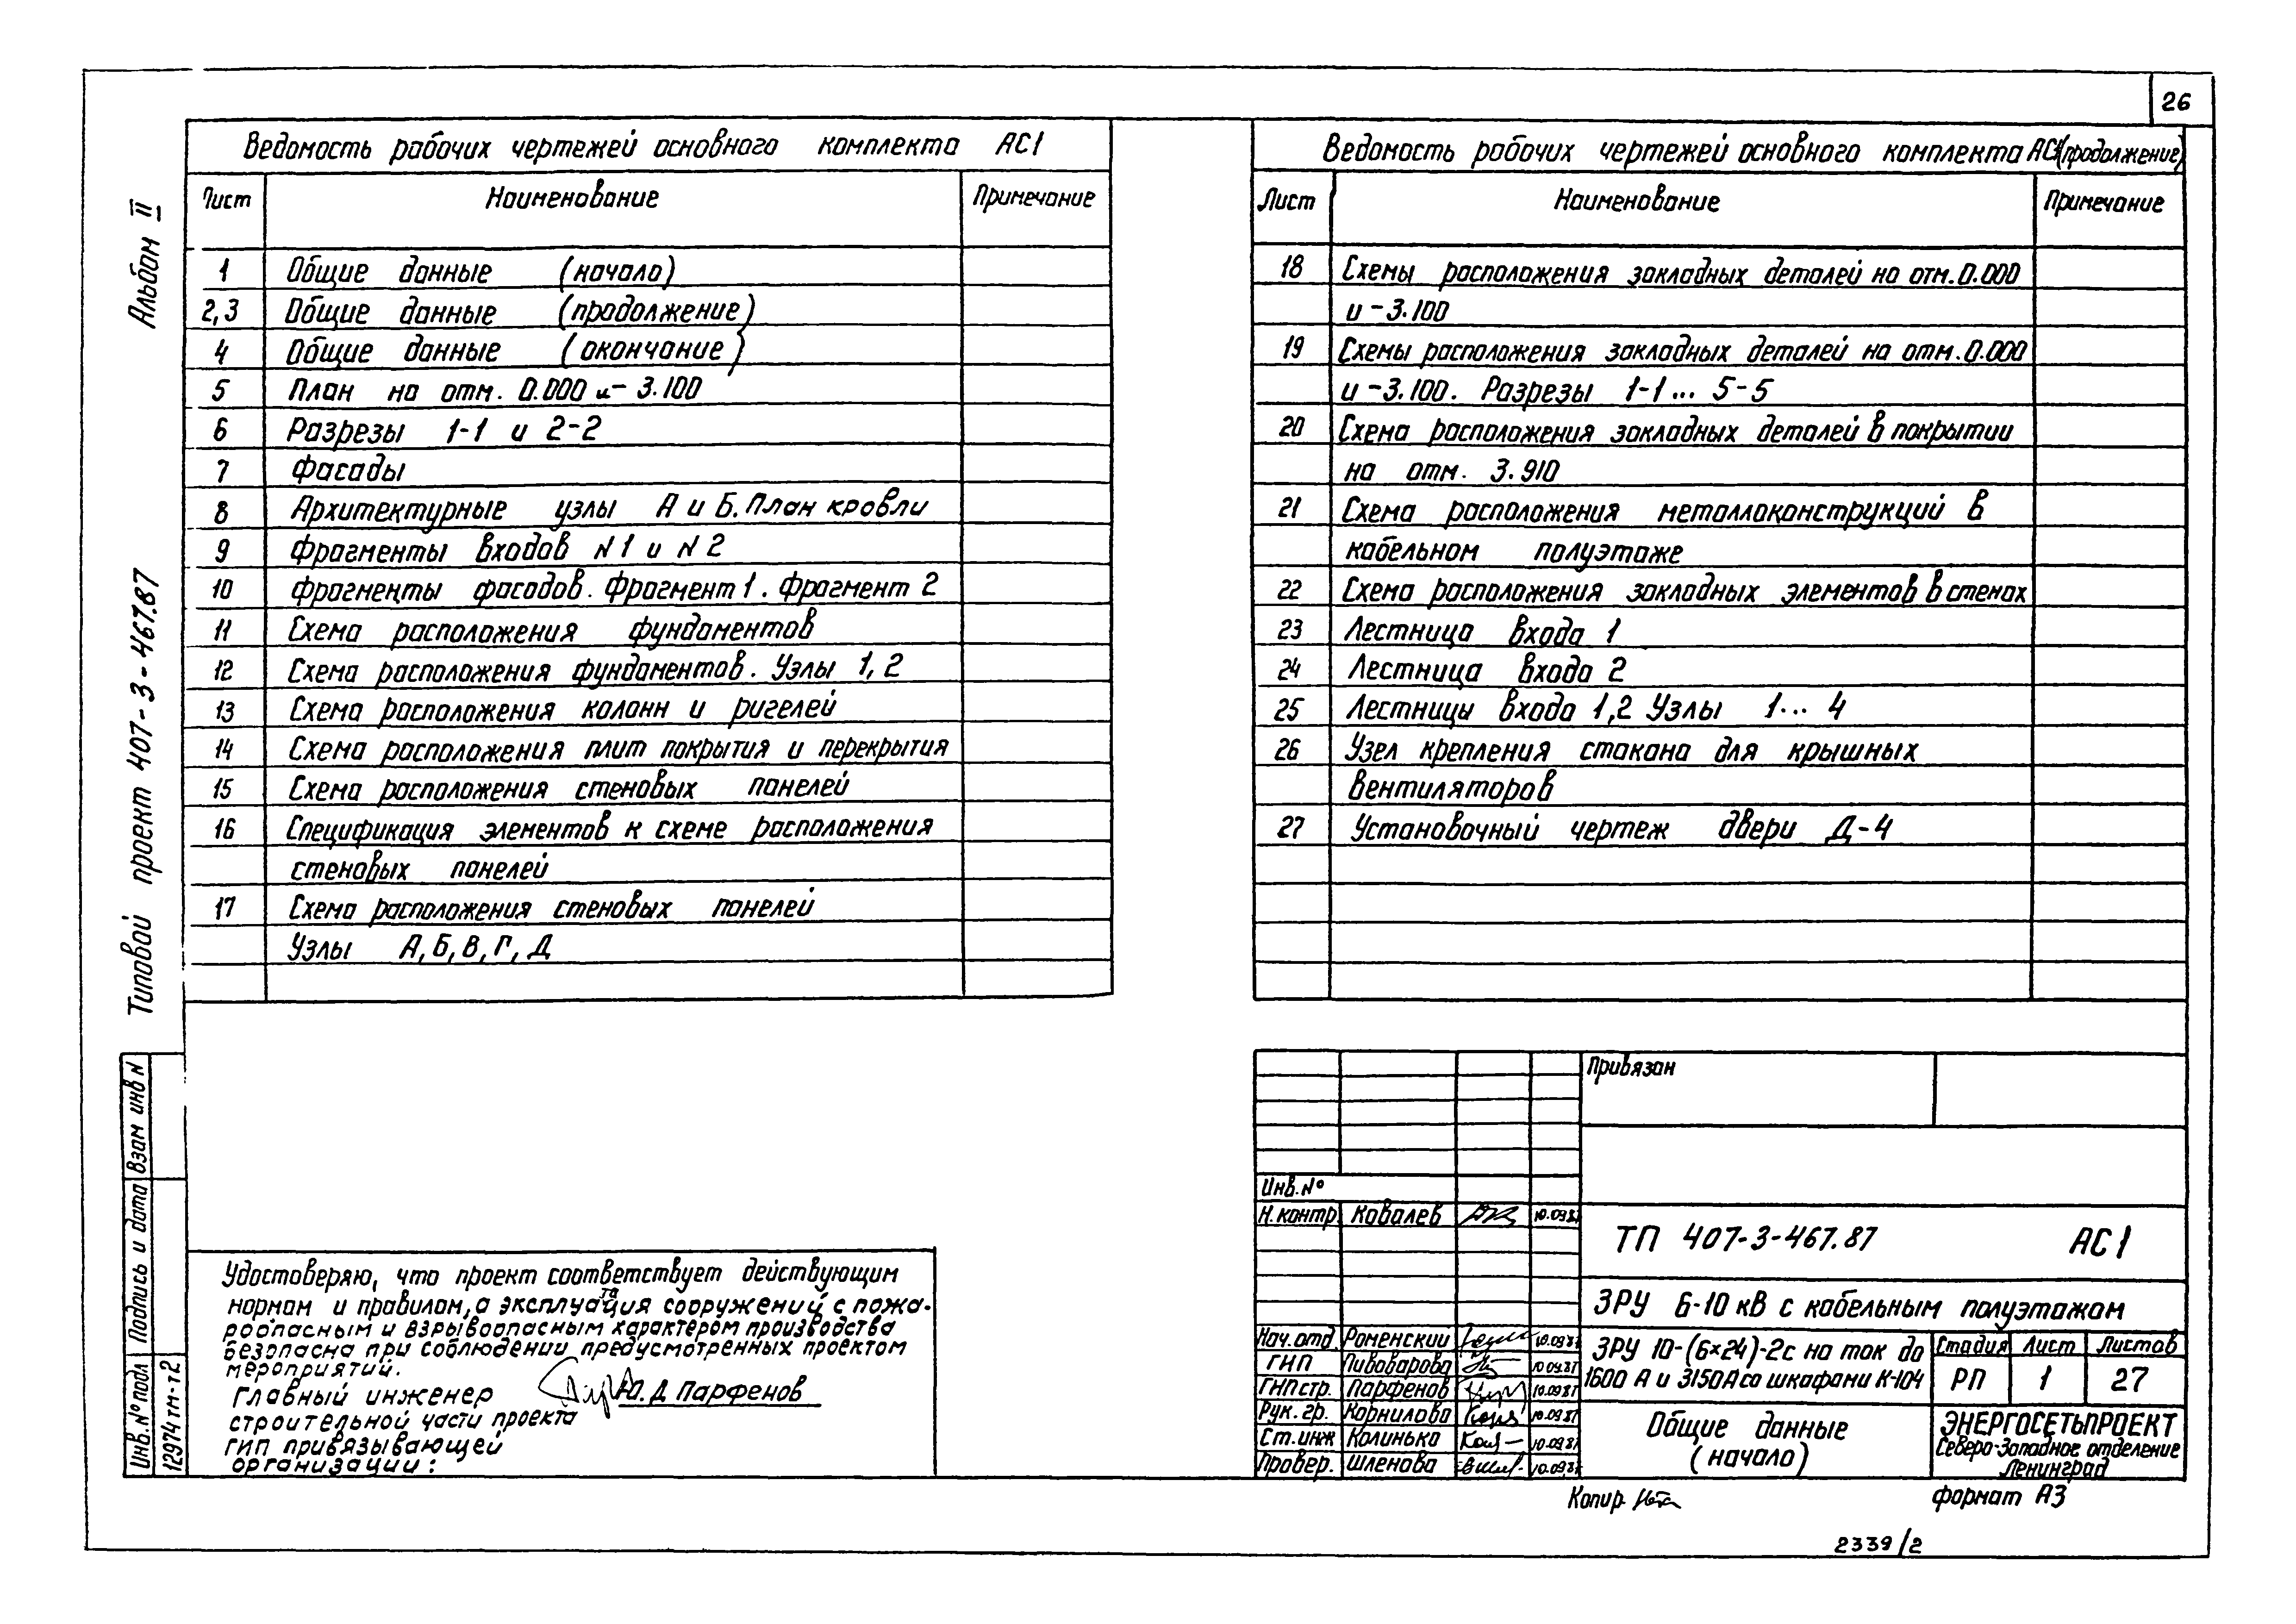 26
Альбом II
Типовой проект 407-3-467.87
Ведомость рабочих чертежей основного комплекта АС1
Лист Наименование Примечание
1 Общие данные (начало)
2,3 Общие данные (продолжение)
4 Общие данные (окончание)
5 План на отм. 0.000 и -3.100
6 Разрезы 1-1 и 2-2
7 Фасады
8 Архитектурные узлы А и Б. План кровли
9 Фрагменты входов N1 и N2
10 Фрагменты фасадов. Фрагмент 1. Фрагмент 2
11 Схема расположения фундаментов
12 Схема расположения фундаментов. Узлы 1, 2
13 Схема расположения колонн и ригелей
14 Схема расположения плит покрытия и перекрытия
15 Схема расположения стеновых панелей
16 Спецификация элементов к схеме расположения
стеновых панелей
17 Схема расположения стеновых панелей
Узлы А, Б, В, Г, Д
Ведомость рабочих чертежей основного комплекта АС1 (продолжение)
Лист Наименование Примечание
18 Схемы расположения закладных деталей на отм. 0.000
и -3.100
19 Схемы расположения закладных деталей на отм. 0.000
и -3.100. Разрезы 1-1 ... 5-5
20 Схема расположения закладных деталей в покрытии
на отм. 3.910
21 Схема расположения металлоконструкций в
кабельном полуэтаже
22 Схема расположения закладных элементов в стенах
23 Лестница входа 1
24 Лестница входа 2
25 Лестницы входа 1,2 Узлы 1... 4
26 Узел крепления стакана для крышных
вентиляторов
27 Установочный чертеж двери Д-4
Взам инв N
Подпись и дата
Инв. № подл
12974тм-т2
Удостоверяю, что проект соответствует действующим
нормам и правилам, а эксплуатация сооружений с пожа-
роопасным и взрывоопасным характером производства
безопасна при соблюдении предусмотренных проектом
мероприятий.
Главный инженер
строительной части проекта
Ю. Д Парфенов
ГИП привязывающей
организации:
Привязан
Инв. №
Н. контр Ковалев 10.09.87
Нач. отд. Роменский 10.09.87
ГИП Пивоварова 10.09.87
ГИП стр. Парфенов 10.09.87
Рук. гр. Корнилова 10.09.87
Ст. инж Калинько 10.09.87
Провер. Шленова 10.09.87
ТП 407-3-467.87 АС1
ЗРУ 6-10 кВ с кабельным полуэтажом
ЗРУ 10-(6×24)-2с на ток до
1600 А и 3150А со шкафами К-104
Стадия Лист Листов
РП 1 27
Общие данные
(начало)
ЭНЕРГОСЕТЬПРОЕКТ
Северо-Западное отделение
Ленинград
Копир
формат А3
2339/2